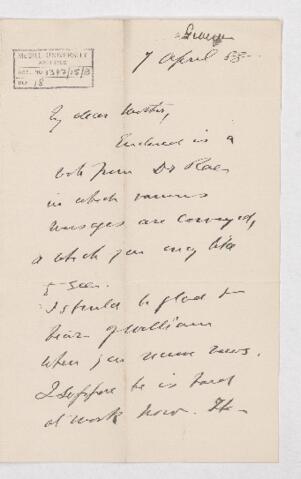 7 April 85
McGILL UNIVERSITY
ARCHIVES
ACC. NO. 1397/15/3
REF. 18
My dear Mother,
Enclosed is a
note from Dr Rae
in which various
messages are conveyed,
& which you may like
to see.
I should be glad to
hear of William
when you receive news.
I suppose he is hard
at work now. The